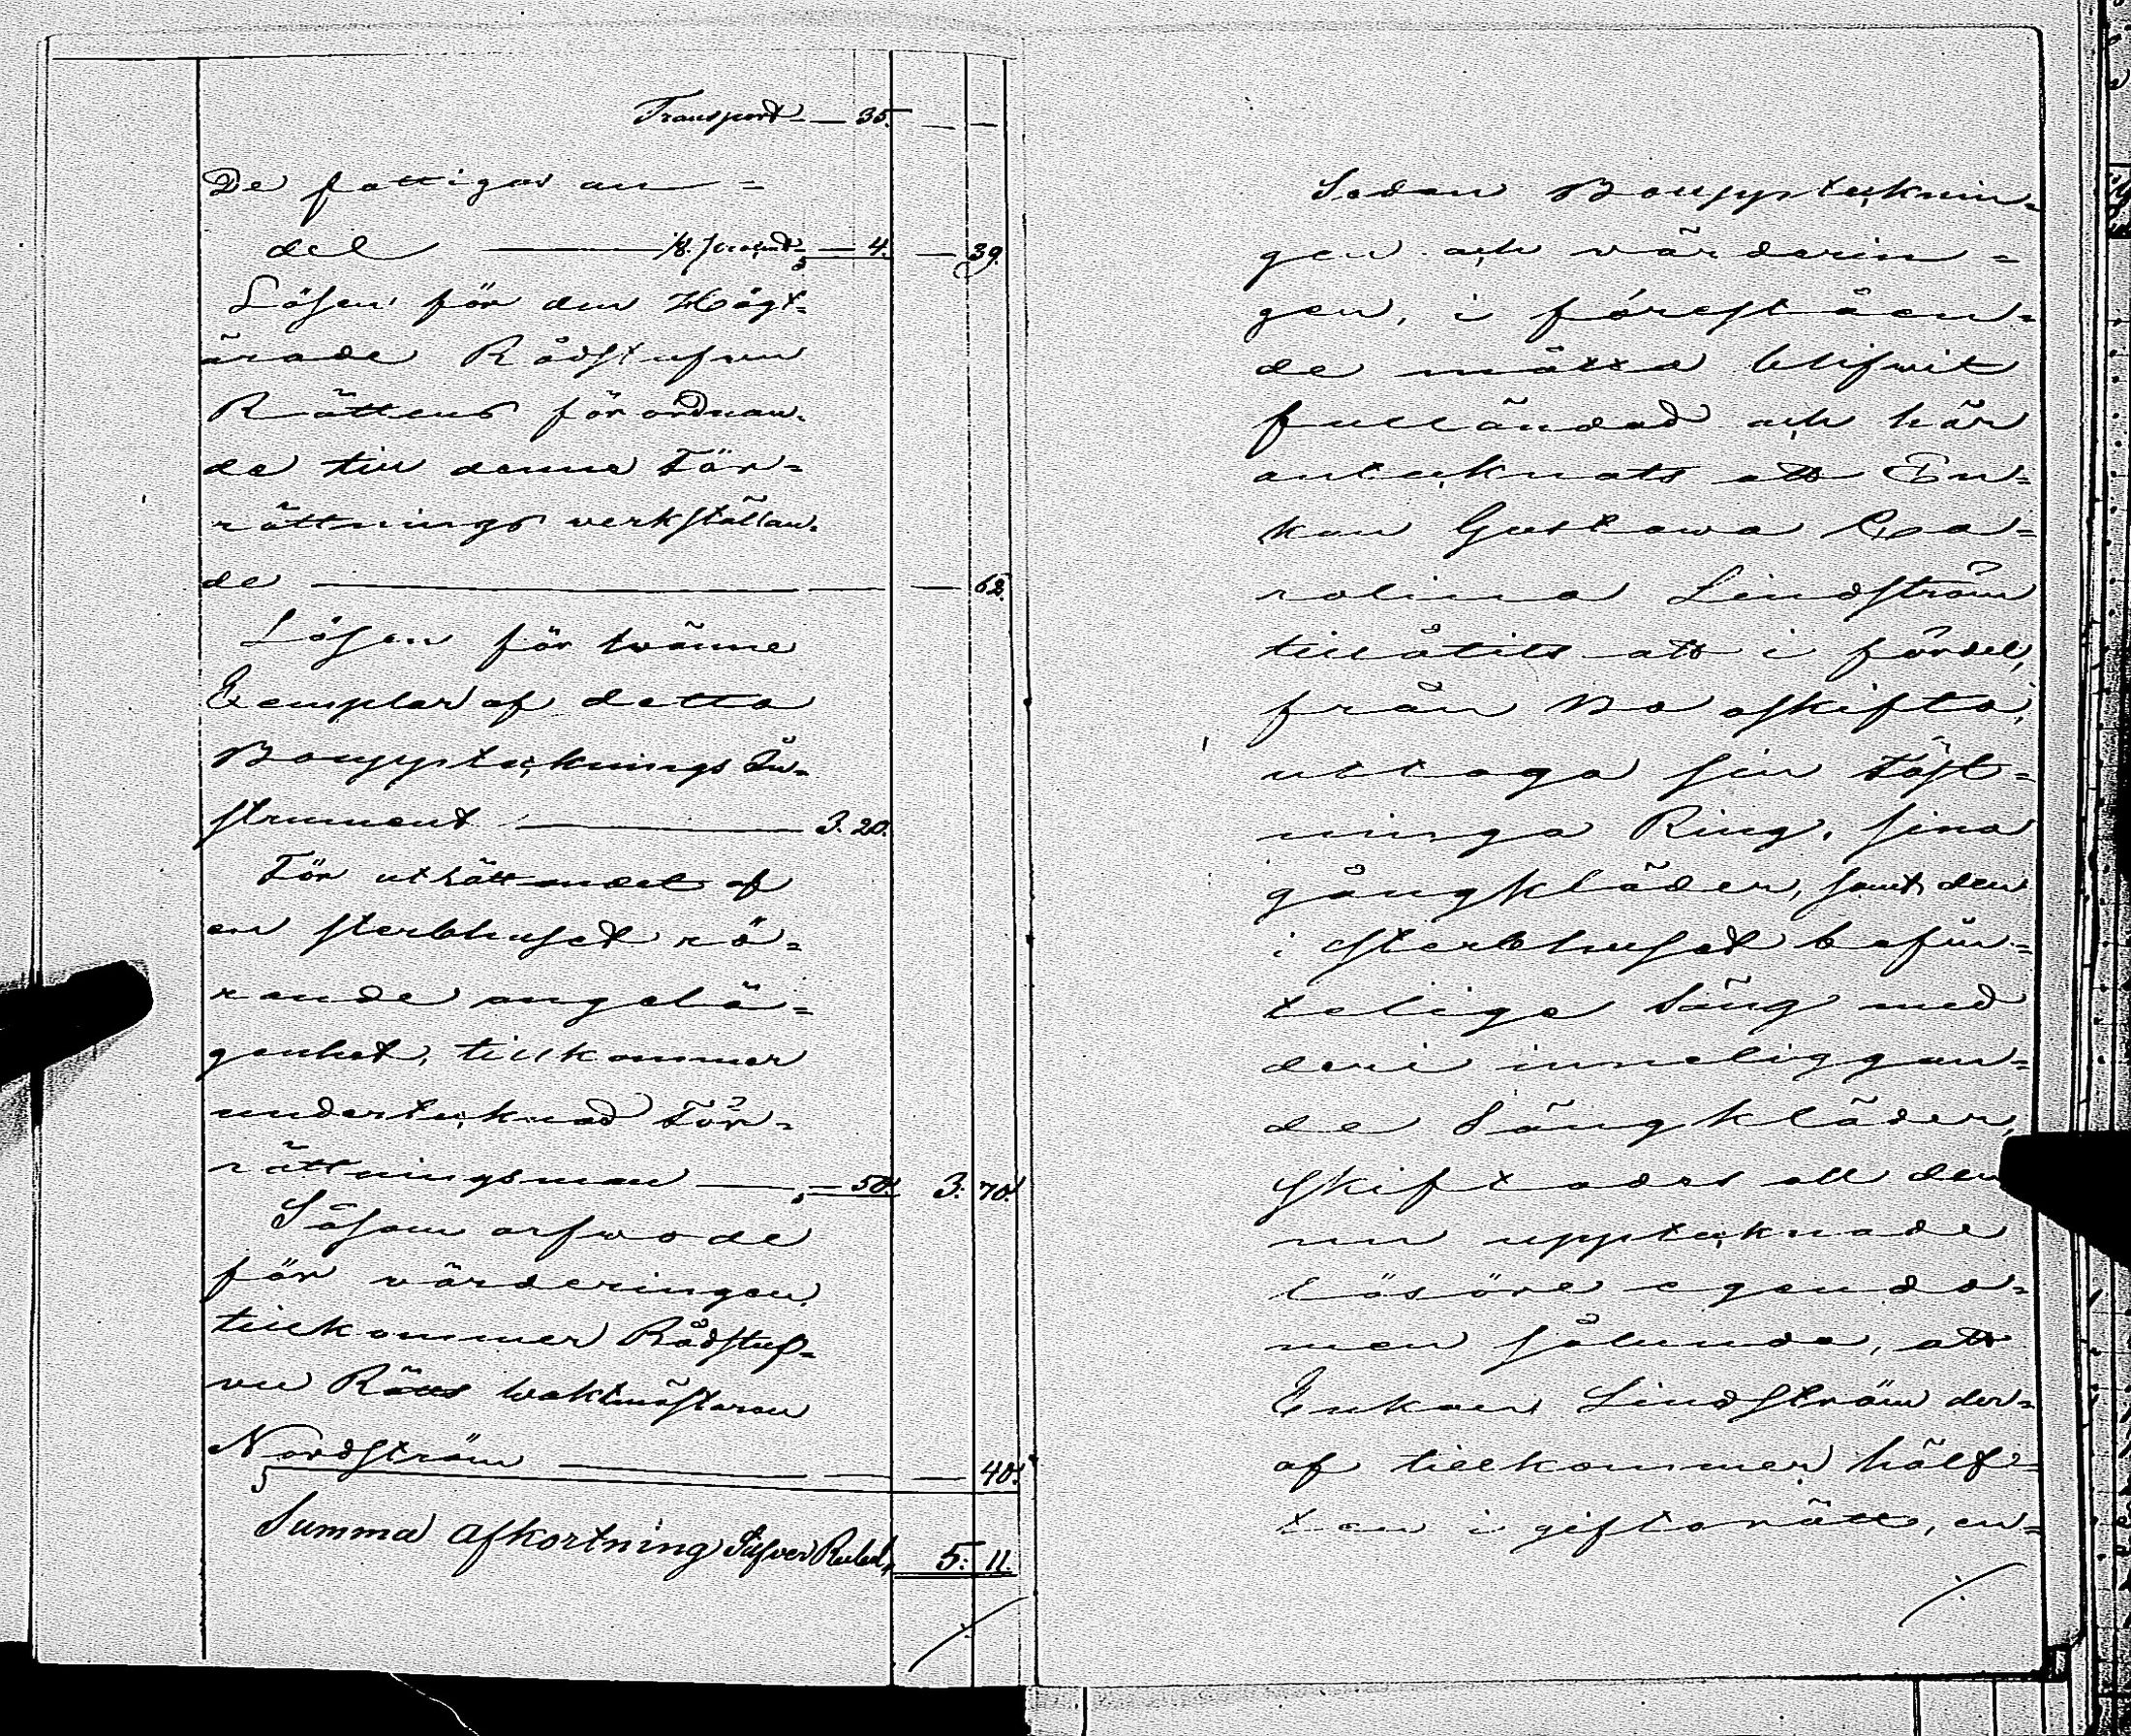 Transport — 35. — —
De fattigas an=
del — 1/8 procent — 4. — 39.
Lösen för den Högt-
ärade Rådstufvu
Rättens förordnan-
de till denna För=
rättnings verkställan-
de — — 62.
Lösen för twänne
Exemplar af detta
Boupptecknings In-
strument — 3. 20.
För uträttandet af
en sterbhuset rö-
rande angelä=
genhet, tillkommer
undertecknad För-
rättningsman — — 50. 3. 70.
Såsom arfwode
för värderingen
tillkommer Rådstuf-
vu Rätts waktmästaren
Nordström — — 40.
Summa afkortning Silfver Rubel, 5: 11.
Sedan Boupptecknin-
gen och värderin=
gen, i föreståen-
de måtto blifwit
fulländad och här
antecknats att En=
kan Gustawa Ca=
rolina Lindström
tillåtits att i fördel,
från Bo oskifto,
uttaga sin Fäst=
ninga Ring, sina
gångkläder, samt den
i sterbhuset befin-
telige Säng med
deri inneliggan=
de Sängkläder,
skiftades all den
nu upptecknade
lösöre egendo-
men sålunda, att
Enkan Lindström der-
af tillkommer hälf=
ten i giftorätt, en-